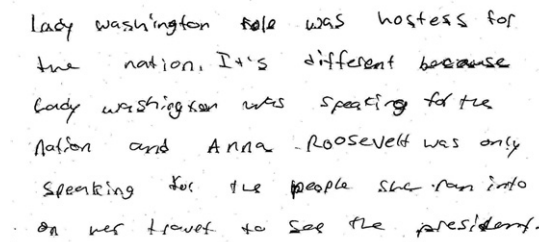 Lady washington role was hostess for
the nation. It's different because
Lady washington was speaking for the
nation and Anna Roosevelt was only
speaking for the people she ran into
on her travel to see the president.